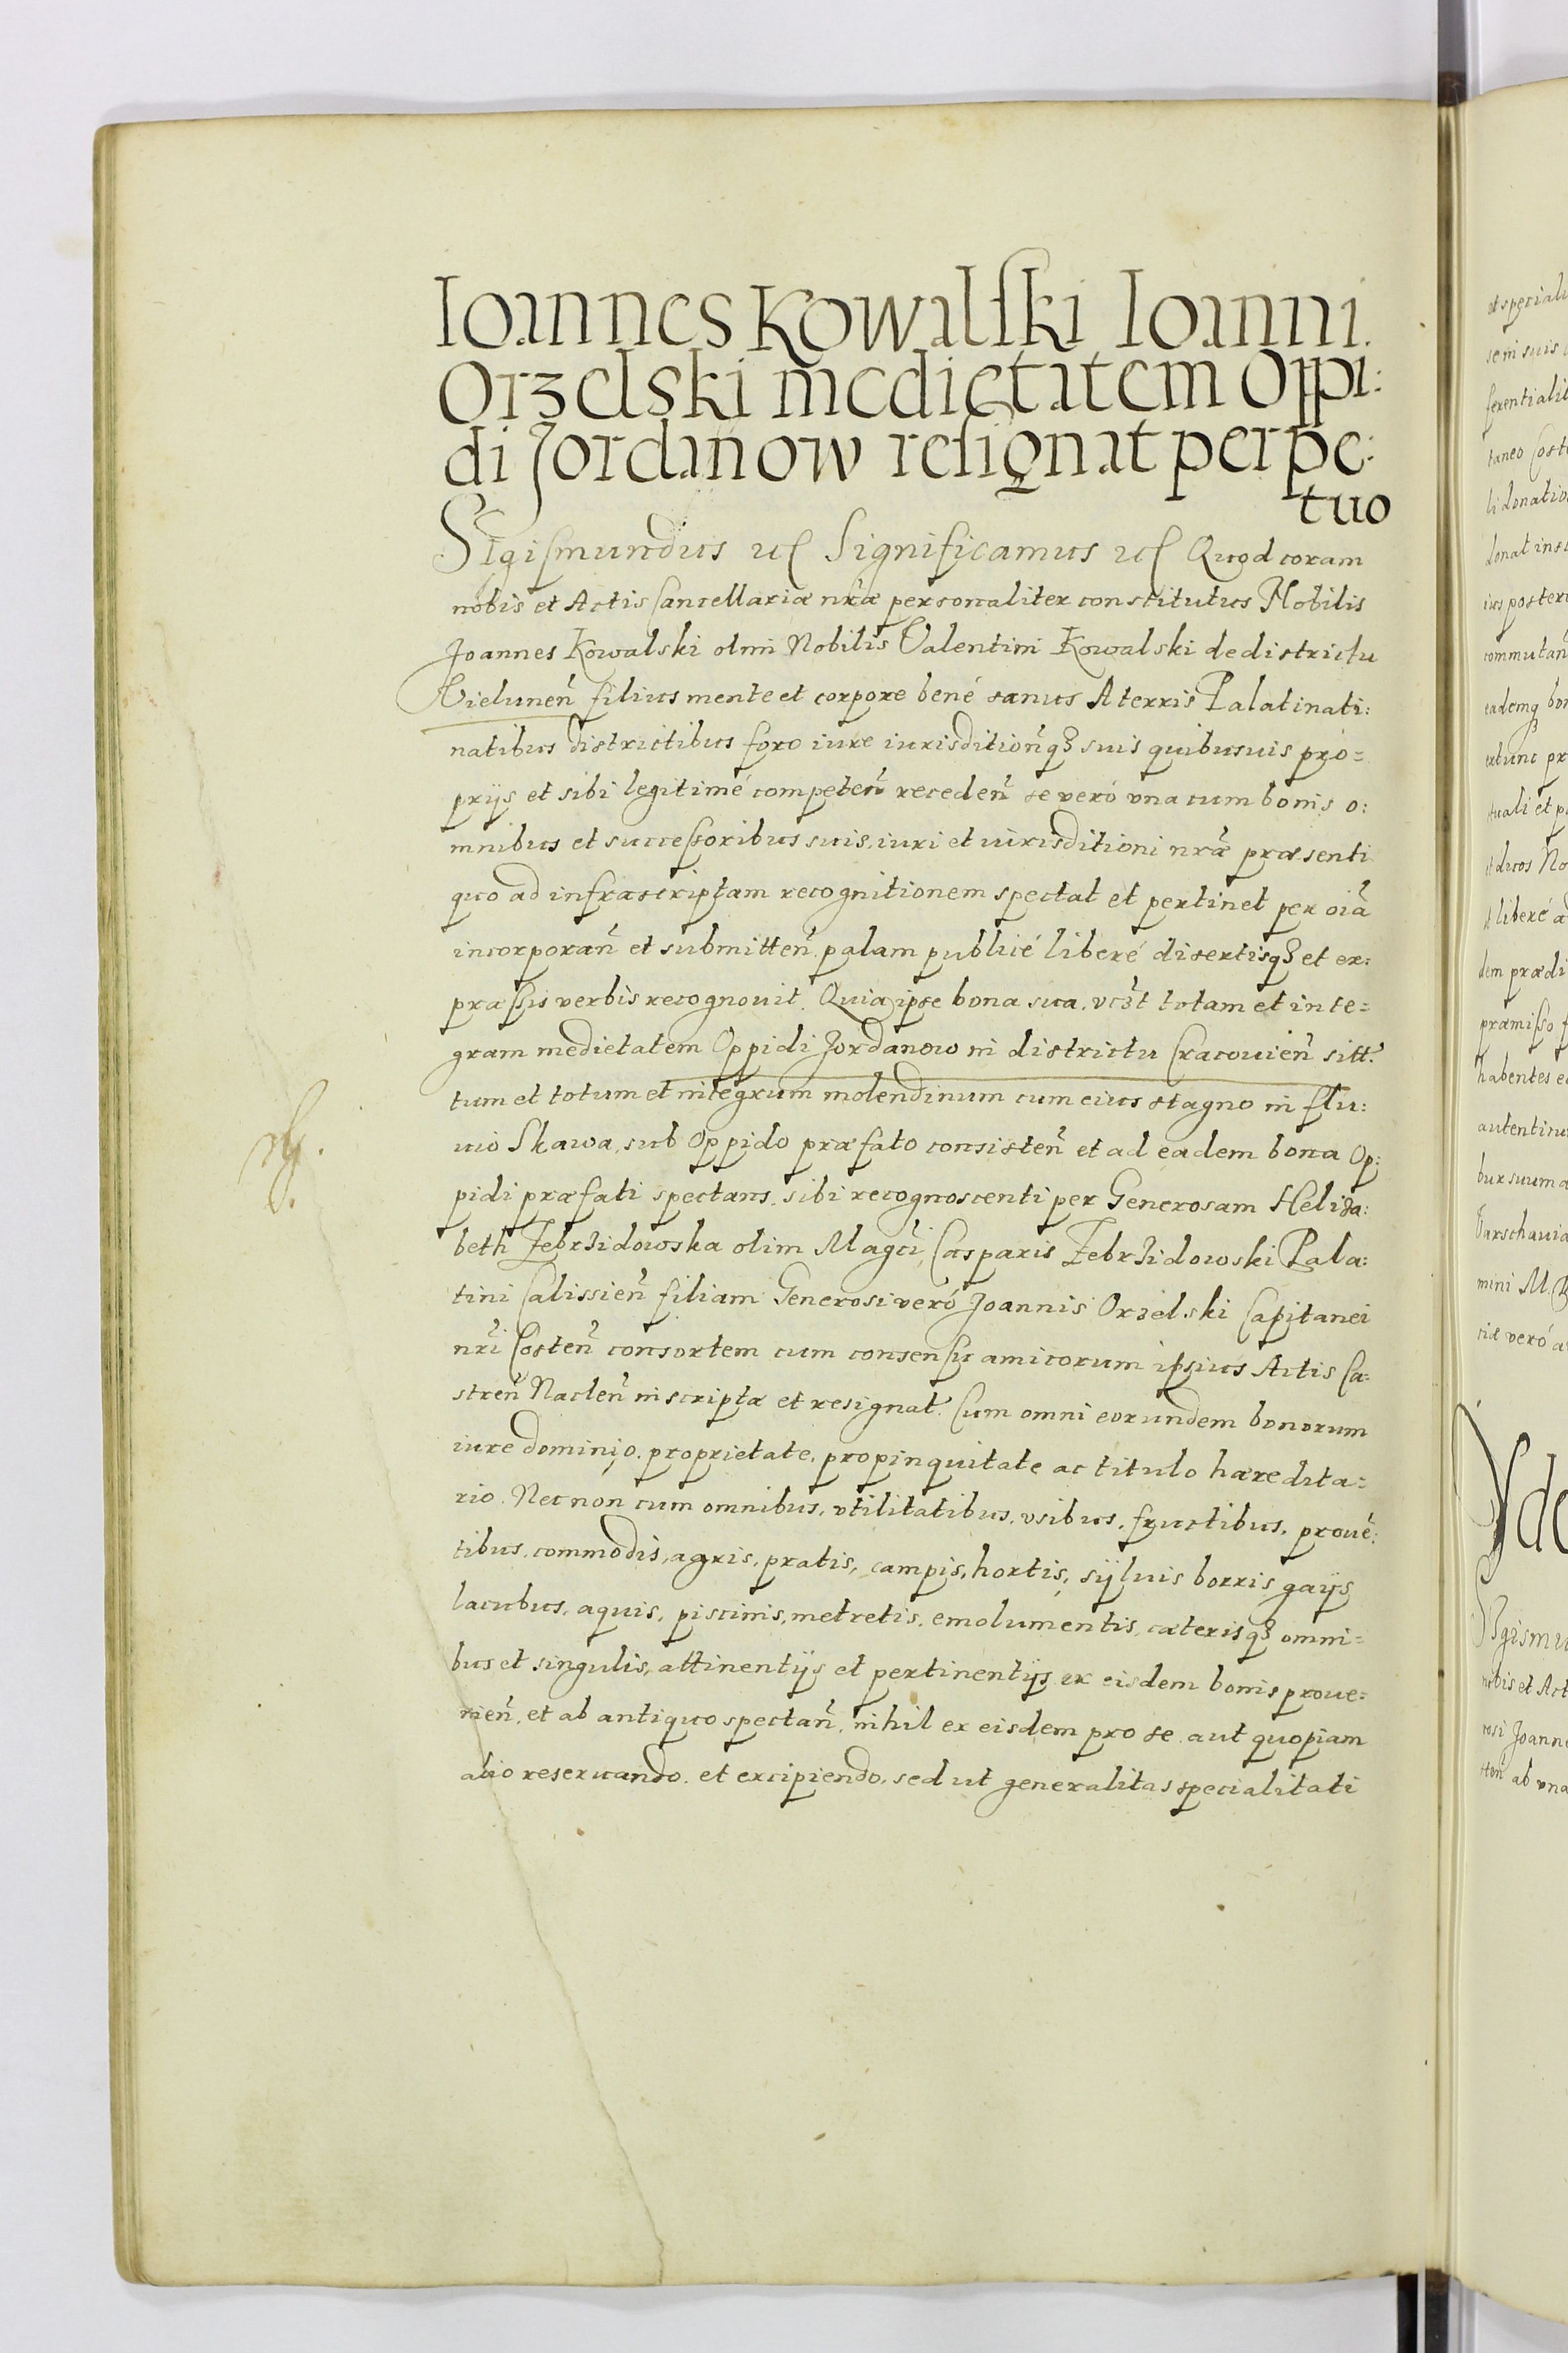 Ioannes Kowalſki Ioanni
Orzelski medietatem Oppi:
di Jordanow reſignat perpe:
tuo
Sigiſmundus etc Significamus etc Quod coram
nobis et Actis Cancellariæ nr̃æ personaliter constitutus Nobilis
Joannes Kowalski olim Nobilis Valentini Kowalski de districtu
Vielunen̄ filius mente et corpore bené sanus A terris Palatinati:
natibus districtibus foro iure iurisdition̄qȝ suis quibusuis pro=
prijs et sibi legitimé competen̄ receden̄ se veró vna cum bonis o:
mnibus et succeſsoribus suis, iuri et iurisditioni nrǣ præsenti
quo ad infrascriptam recognitionem spectat et pertinet per oia̅
incorporan̄ et submitten̄ palam publicé liberé disertisqȝ et ex:
præſsis verbis recognouit. Quia ipse bona sua, vcȝt totam et inte=
gram medietatem Oppidi Jordanow in districtu Cracouien̄ sitt.
tum et totum et integrum molendinum cum eius stagno in flu:
uio Skawa, sub Oppido præfato consisten̄ et ad eadem bona Op:
pidi præfati spectans, sibi recognoscenti per Generosam Heliza:
beth Zebrzidowska olim Magc̃i Casparis Zebrzidowski Pala:
tini Calissien̄ filiam Generosi veró Joannis Orzelski Capitanei
nr̃i Costen̄ consortem cum consenſu amicorum ipsius Actis Ca:
stren̄ Naclen̄ inscripta et resignat. Cum omni eorundem bonorum
iure dominio, proprietate, propinquitate ac titulo hæredita:
rio. Nec non cum omnibus, vtilitatibus, vsibus, fructibus, prouē:
tibus, commodis, agris, pratis, campis, hortis, sijluis borris gaijs
lacubus, aquis, piscinis, metretis, emolumentis, cæterisqȝ omni=
bus et singulis, attinentijs et pertinentijs ex eisdem bonis proue=
nien̄, et ab antiquo spectan̄, nihil ex eisdem pro se aut quopiam
alio reseruando et excipiendo, sed ut generalitas specialitati